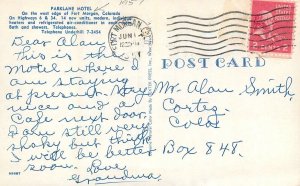 PARKLANE MOTEL
On the west edge of Fort Morgan, Colorado
On Highways 6 & 34. 14 new units, modern,
heaters and refrigerated air-conditioners in each
Bath and showers. Telephones.
Telephone Underhill 7-2454
JUN 4
12 30 PM
POST CARD
Dear Alan
This is the
Motel where I
am staying
at present. Very
nice and a
Cafe next door
I am still very
shaky but think
I will be better
soon. Love
Grandma.
Mr. Alan Smith,
Cortez,
Colo.
Box 848.